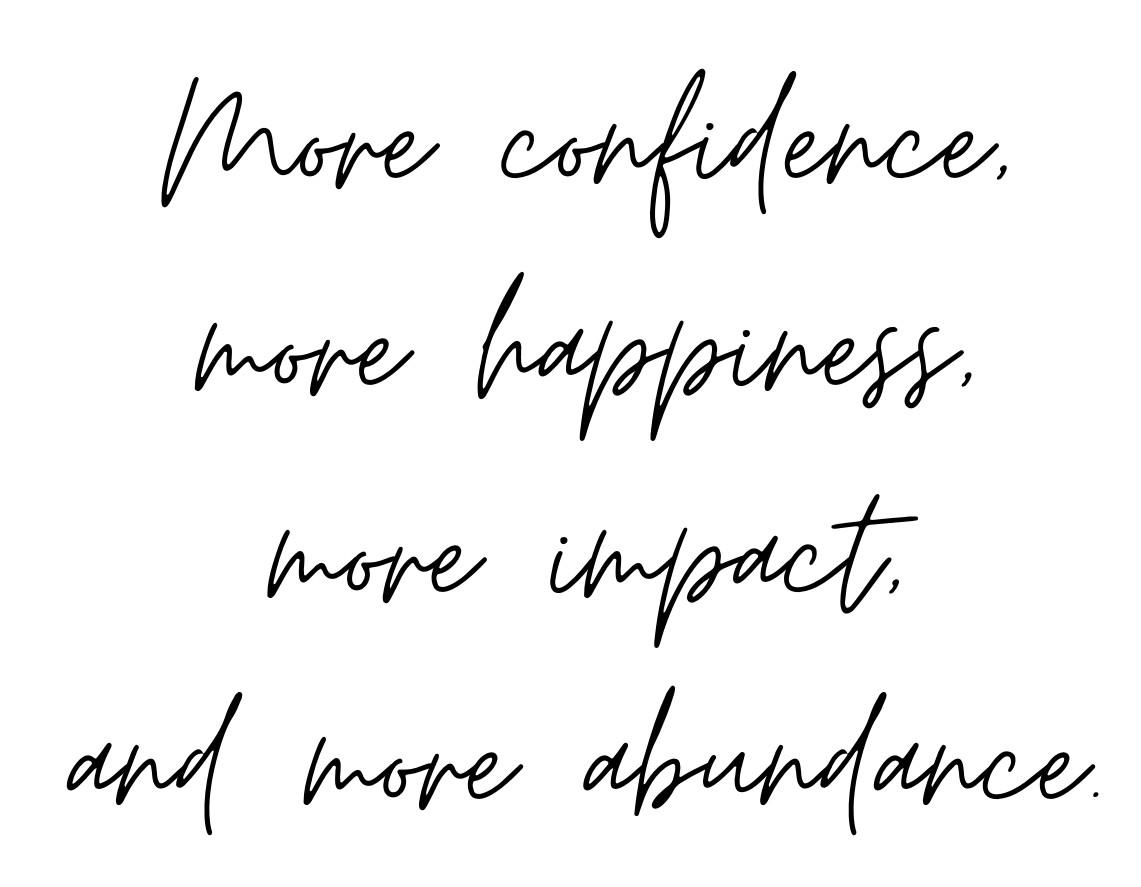 More confidence,
more happiness,
more impact,
and more abundance.